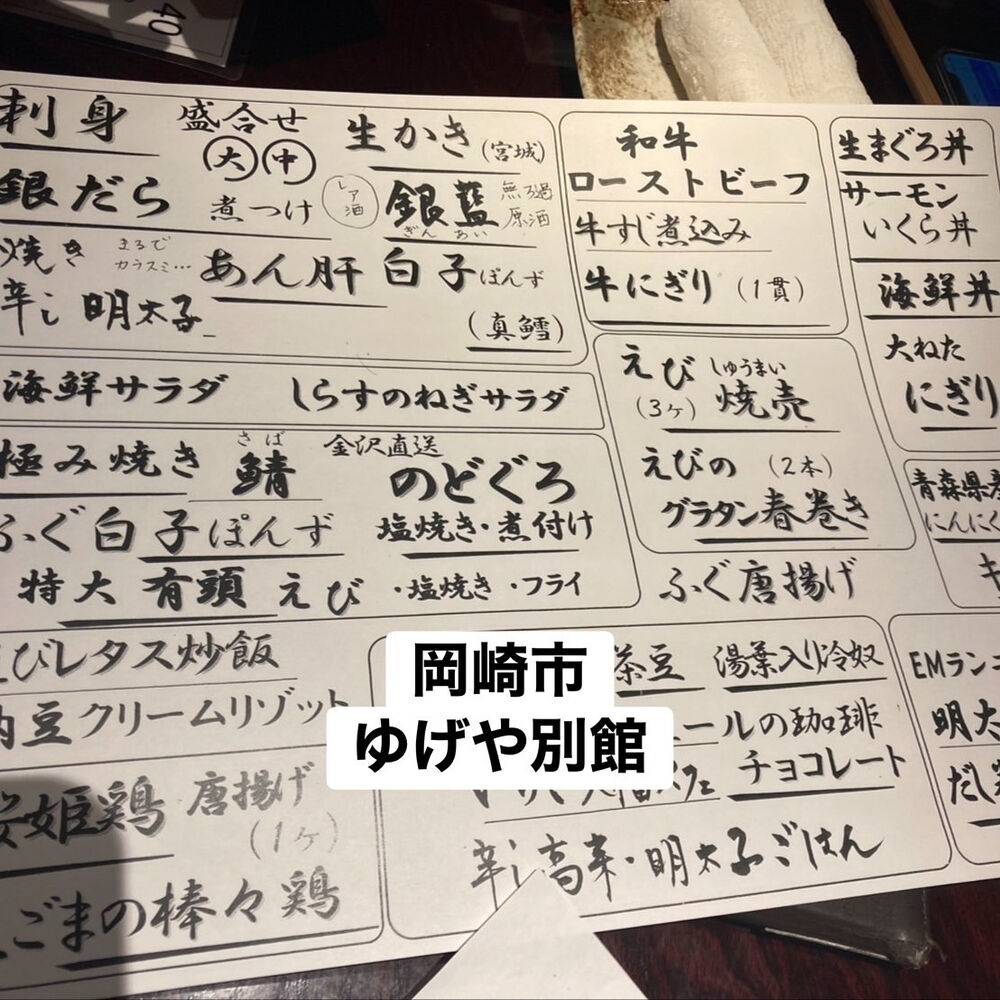 40
刺身 盛合せ 大 中
生かき (宮城)
銀だら 煮つけ
レア酒 銀藍 ぎんあい 無ろ過原酒
焼き まるでカラスミ…
辛し明太子
あん肝 白子ぽんず
(真鱈)
海鮮サラダ しらすのねぎサラダ
極み焼き 鯖 さば
金沢直送
のどぐろ
塩焼き・煮付け
ふぐ白子ぽんず
特大有頭えび ・塩焼き ・フライ
びレタス炒飯
豆クリームリゾット
姫鶏 唐揚げ
(1ヶ)
ごまの棒々鶏
和牛
ローストビーフ
牛すじ煮込み
牛にぎり (1貫)
えび (3ヶ) 焼売 しゅうまい
えびの (2本)
グラタン春巻き
ふぐ唐揚げ
茶豆 湯葉入り冷奴
ールの珈琲
チョコレート
辛し高菜・明太子ごはん
生まぐろ丼
サーモン
いくら丼
海鮮丼
大ねた
にぎり
青森県産
にんにく
EMラン
明太
だし
岡崎市
ゆげや別館